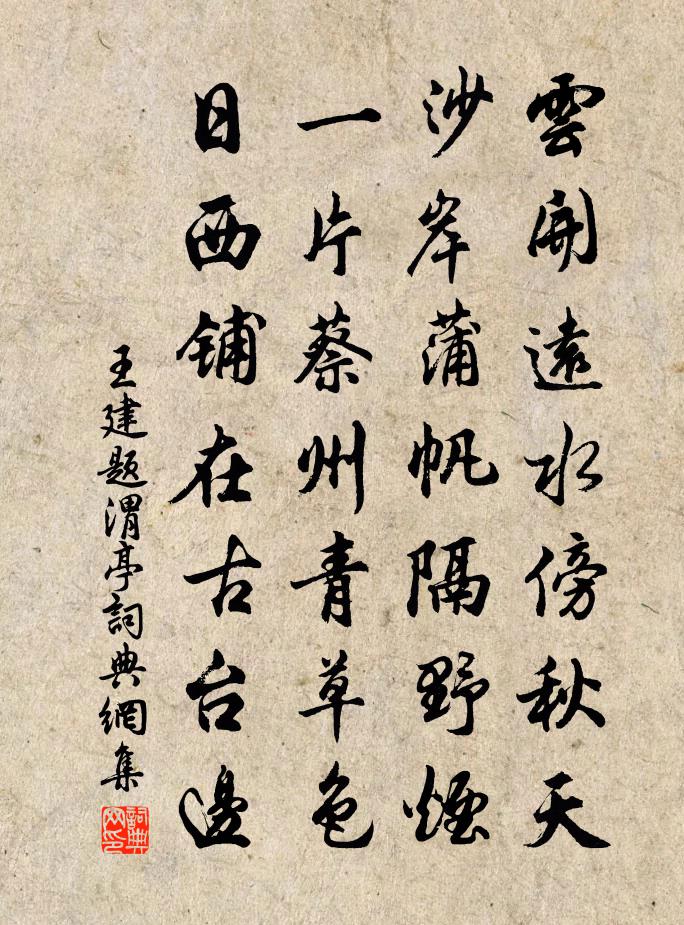 雲開遠水傍秋天
沙岸蒲帆隔野煙
一片蔡州青草色
日西铺在古台邊
王建题渭亭詞典網集
詞典网印